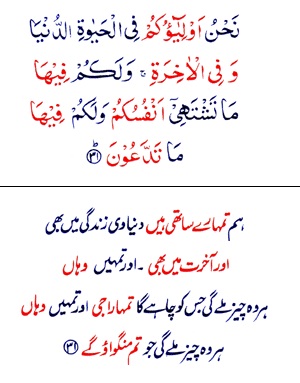 نَحْنُ اَوْلِيٰٓؤُكُمْ فِى الْحَيٰوةِ الدُّنْيَا
وَ فِى الْاٰخِرَةِ ۚ وَلَكُمْ فِيْهَا
مَا تَشْتَهِىْٓ اَنْفُسُكُمْ وَلَكُمْ فِيْهَا
مَا تَدَّعُوْنَ ؕ ﴿۳۱﴾
ہم تمہارے ساتھی ہیں دنیاوی زندگی میں بھی
اور آخرت میں بھی ۔ اور تمہیں وہاں
ہر وہ چیز ملے گی جس کو چاہے گا تمہارا جی اور تمہیں وہاں
ہر وہ چیز ملے گی جو تم منگواؤ گے ﴿۳۱﴾